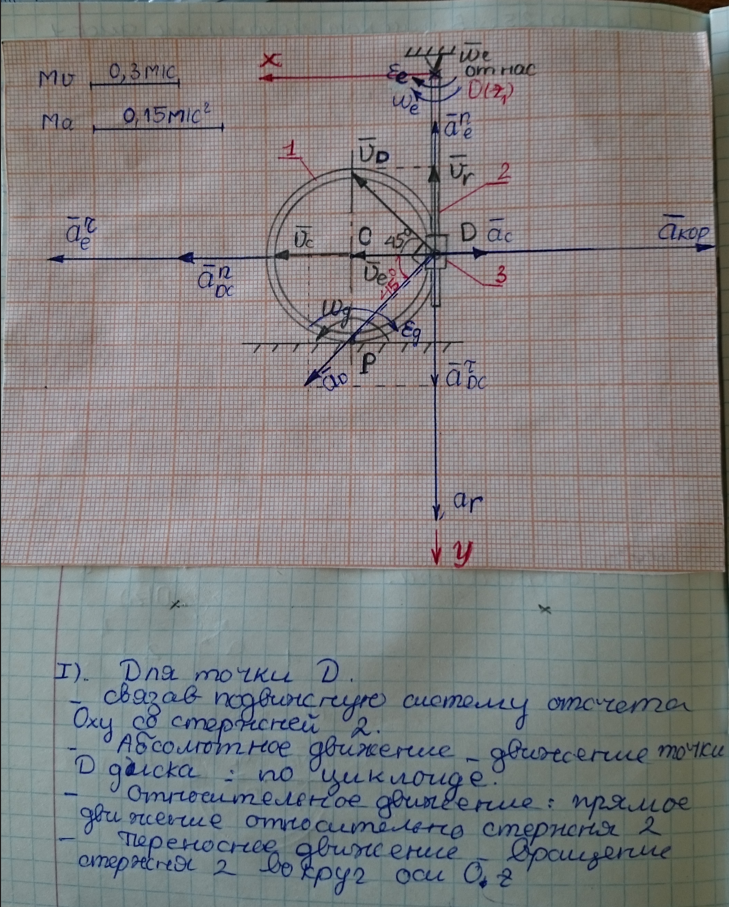 Mv 0,3 м/с
Ma 0,15 м/с²
x
ω̄e
от нас
εe
ωe
O(z₁)
āeⁿ
1
ῡD
ῡr
2
āeτ
āDCⁿ
ῡc
C
45°
D
āc
āкор
ῡe
45°
3
ωg
εg
P
āD
āDCτ
ar
y
I). Для точки D.
- связав подвижную систему отсчета
Oxy со стержней 2.
- Абсолютное движение - движение точки
D диска : по циклоиде.
- Относительное движение : прямое
движение относительно стержня 2
- Переносное движение - вращение
стержня 2 вокруг оси O₁z